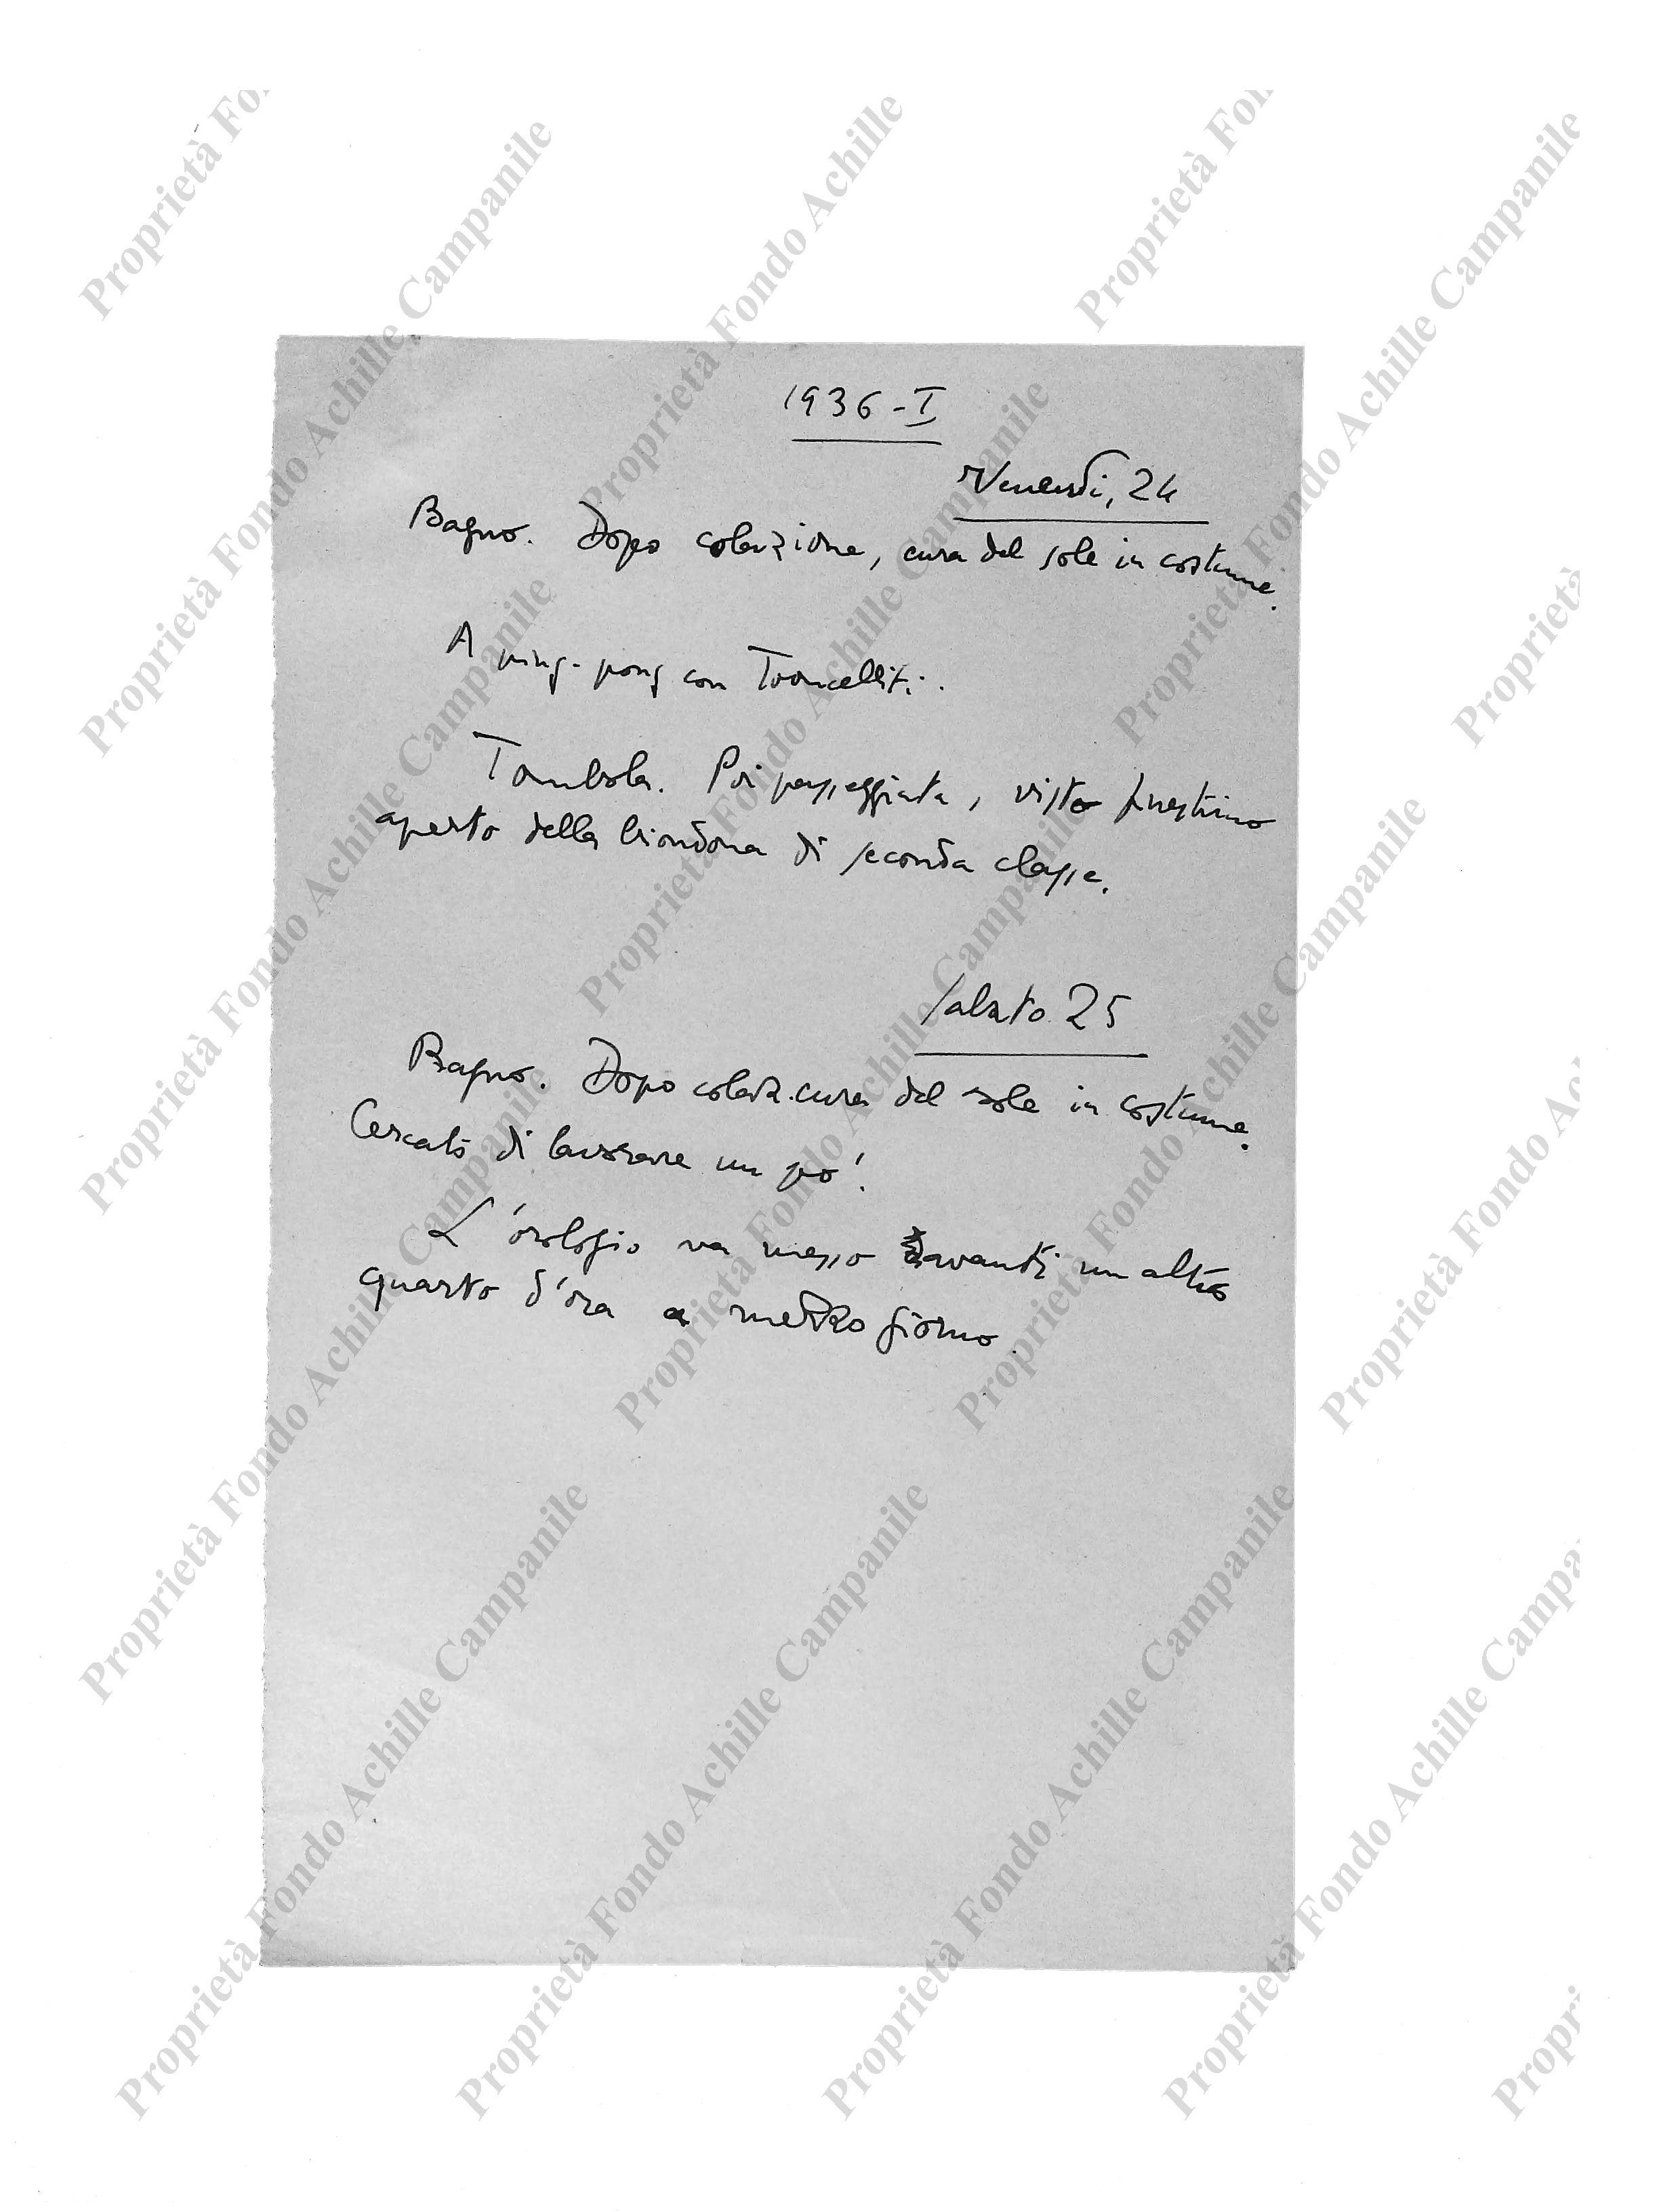 1936-I
Venerdì, 24
Bagno. Dopo colazione, cura del sole in costume.
A ping-pong con
Tombola. Poi passeggiata, visto finestrino
aperto della biondona di seconda classe.
Sabato 25
Bagno. Dopo colaz. cura del sole in costume.
Cercato di lavorare un po'.
L'orologio va messo avanti un altro
quarto d'ora a mezzogiorno.
Proprietà Fondo Achille Campanile